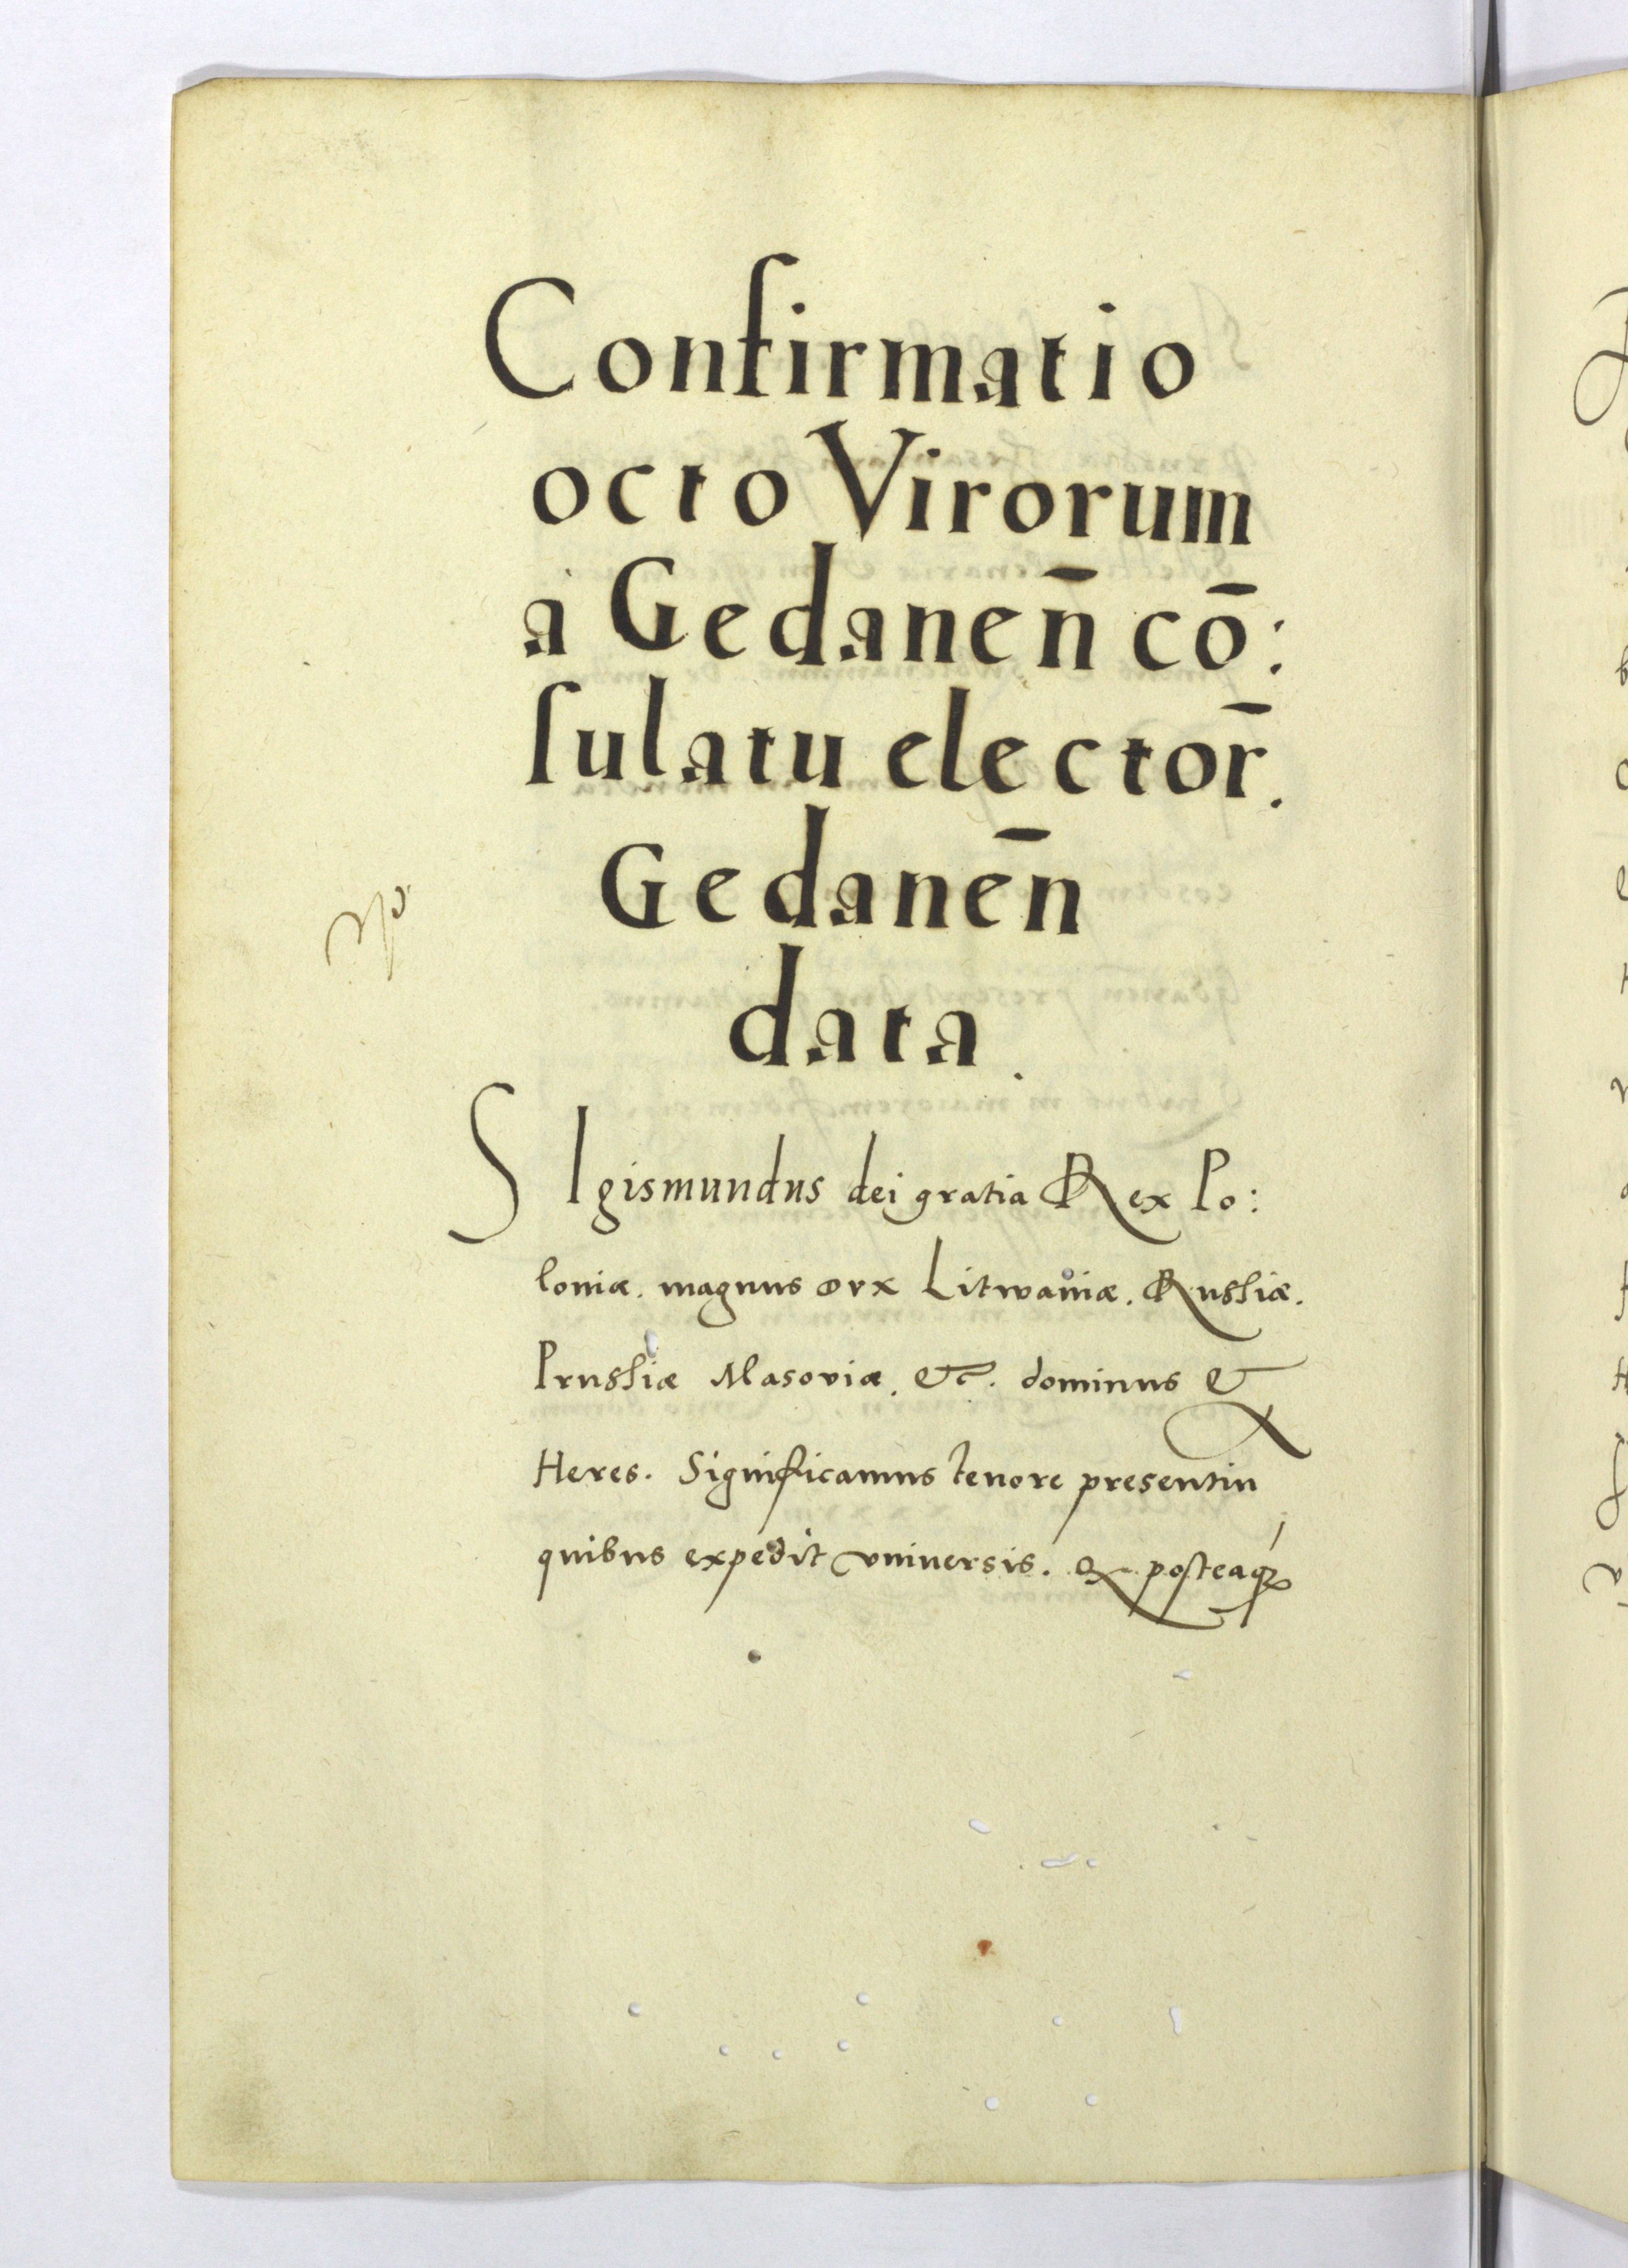 Confirmatio
octo Virorum
a Gedaneñ cō:
ſulatu elector̄.
Gedaneñ
data.
SIgismundus dei gratia Rex Po:
loniæ. magnus dvx Litwaniæ. Rusſiæ.
Prusſiæ Masoviæ. &c. dominus &
Heres. Significamus tenore presentiu
quibus expedit vniuersis. Q posteaqꝫ